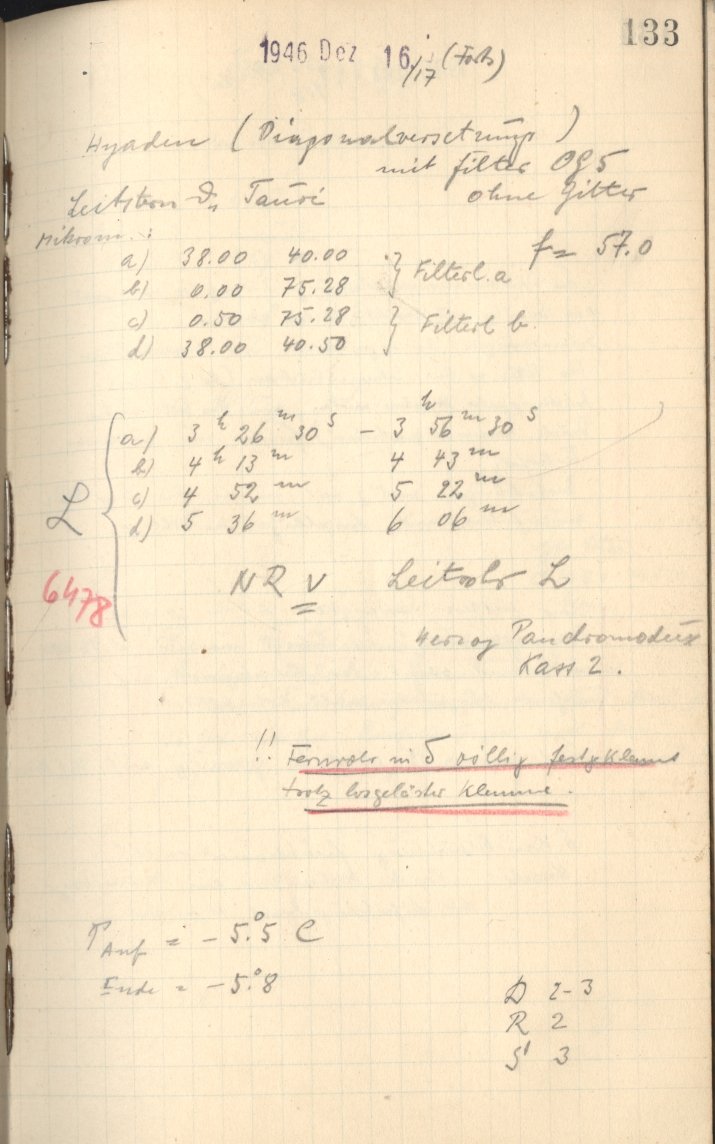 133
1946 Dez 16./17 (Forts)
Hyaden (Diagonalversetzungs)
mit Filter OG5
Leitstern ϑ₁ Tauri ohne Gitter
Mikrom.:
f = 57.0
a) 38.00 40.00 } Filterl. a
b) 0.00 75.28
c) 0.50 75.28 } Filterl b.
d) 38.00 40.50
L { a) 3ʰ 26ᵐ 30ˢ – 3ʰ 56ᵐ 30ˢ
b) 4ʰ 13ᵐ 4 43ᵐ
c) 4 52ᵐ 5 22ᵐ
d) 5 36ᵐ 6 06ᵐ
6478
NR V Leitrohr L
Herzog
Kass 2.
!! Fernrohr in δ völlig festgeklemt
trotz losgelöster Klemme.
T Anf = – 5.°5 C
Ende = – 5.°8
D 2-3
R 2
S 3